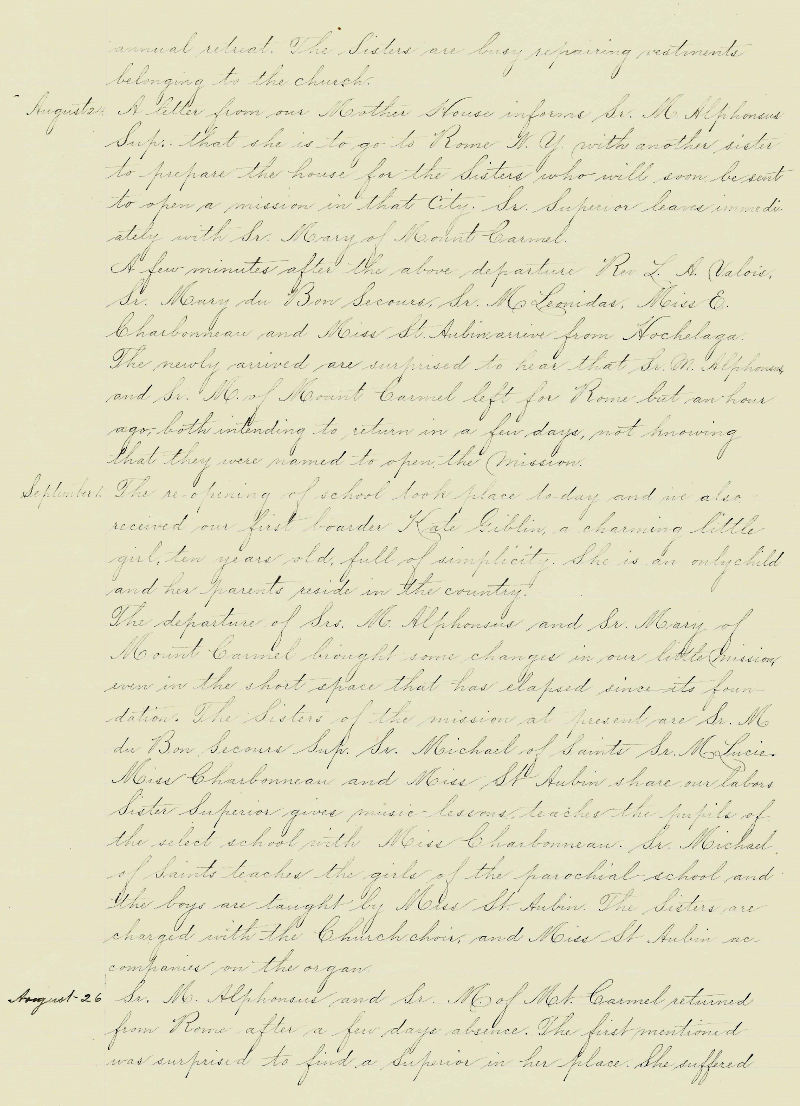 annual retreat. The Sisters are busy repairing vestments
belonging to the church.
August 24. A letter from our Mother House informs Sr. M. Alphonsus
Sup. that she is to go to Rome N. Y. with another sister
to prepare the house for the Sisters who will soon be sent
to open a mission in that City. Sr. Superior leaves immedi-
ately with Sr. Mary of Mount Carmel.
A few minutes after the above departure Rev. L. A. Valois,
Sr. Mary du Bon Secours, Sr. M Leonidas, Miss E.
Charbonneau and Miss St. Aubin, arrive from Hochelaga.
The newly arrived are surprised to hear that Sr. M. Alphonsus
and Sr. M. of Mount Carmel left for Rome but an hour
ago; both intending to return in a few days, not knowing
that they were named to open the Mission.
September 1. The re-opening of school took place to-day and we also
received our first boarder Kate Giblin, a charming little
girl, ten years old, full of simplicity. She is an only child
and her parents reside in the country.
The departure of Srs. M. Alphonsus and Sr. Mary of
Mount Carmel brought some changes in our little Mission,
even in the short space that has elapsed since its foun-
dation. The Sisters of the mission at present are Sr. M
du Bon Secours Sup. Sr. Michael of Saints Sr. M. Lucie.
Miss Charbonneau and Miss St Aubin share our labors
Sister Superior gives music-lessons, teaches the pupils of
the select school with Miss Charbonneau. Sr. Michael
of Saints teaches the girls of the parochial-school and
the boys are taught by Miss St. Aubin. The Sisters are
charged with the Church choir, and Miss St Aubin ac-
companies on the organ.
August-26 Sr. M. Alphonsus and Sr. M. of Mt. Carmel returned
from Rome after a few days absence. The first mentioned
was surprised to find a Superior in her place. She suffered